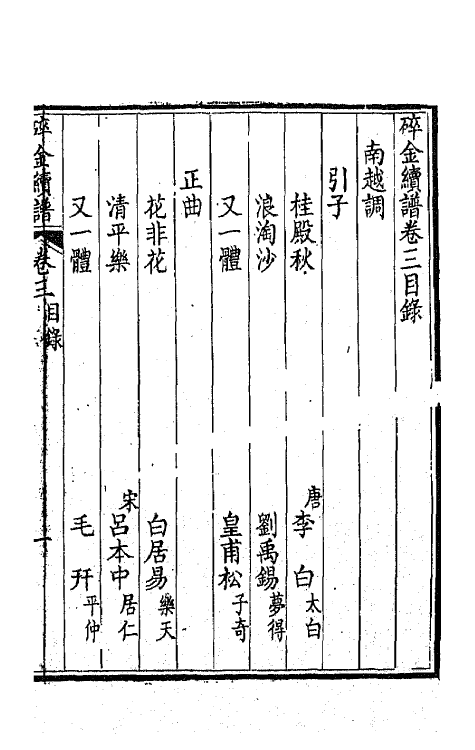 碎金續譜卷三目錄
南越調
引子
桂殿秋 唐李白太白
浪淘沙 劉禹錫夢得
又一體 皇甫松子奇
正曲
花非花 白居易樂天
清平樂 宋呂本中居仁
又一體 毛幵平仲
碎金續譜 卷三目錄 一